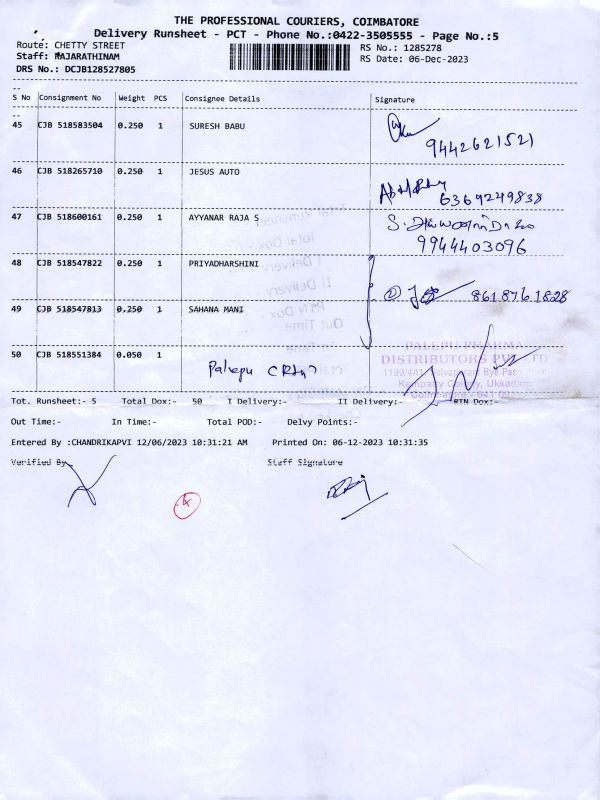 THE PROFESSIONAL COURIERS, COIMBATORE
Delivery Runsheet - PCT - Phone No.:0422-3505555 - Page No.:5
Route: CHETTY STREET
RS No.: 1285278
Staff: RAJARATHINAM
RS Date: 06-Dec-2023
DRS No.: DCJB128527805
S No Consignment No Weight PCS Consignee Details Signature
45 CJB 518583504 0.250 1 SURESH BABU
9442621521
46 CJB 518265710 0.250 1 JESUS AUTO
6369249838
47 CJB 518600161 0.250 1 AYYANAR RAJA S
9944403096
48 CJB 518547822 0.250 1 PRIYADHARSHINI
861.876.1828
49 CJB 518547813 0.250 1 SAHANA MANI
50 CJB 518551384 0.050 1 Palepu
PALEPU PHARMA
DISTRIBUTORS PVT LTD
1199/4A1, Selvapuram Bye Pass
Kempatty Colony, Ukkadam
Tot. Runsheet:- 5 Total Dox:- 50 I Delivery:- II Delivery:- RTN Dox:-
Out Time:- In Time:- Total POD:- Delvy Points:-
Entered By :CHANDRIKAPVI 12/06/2023 10:31:21 AM Printed On: 06-12-2023 10:31:35
Verified By Staff Signature